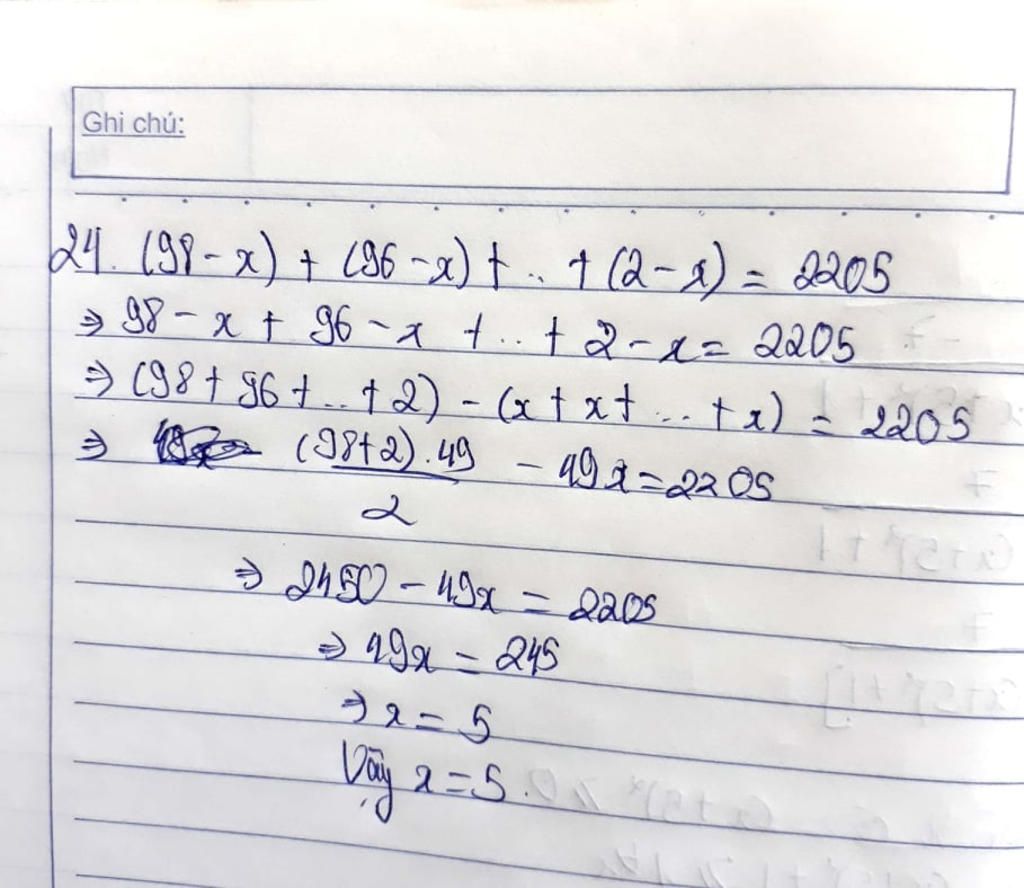 Ghi chú:
24. (98 - x) + (96 - x) + .. + (2 - x) = 2205
⇒ 98 - x + 96 - x + .. + 2 - x = 2205
⇒ (98 + 96 + .. + 2) - (x + x + ... + x) = 2205
⇒ (98+2).49 / 2 - 49x = 2205
⇒ 2450 - 49x = 2205
⇒ 49x = 245
⇒ x = 5
Vậy x = 5.